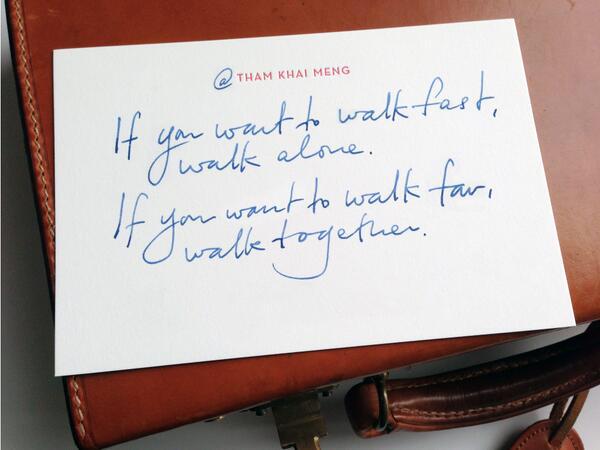 @THAM KHAI MENG
If you want to walk fast,
walk alone.
If you want to walk far,
walk together.